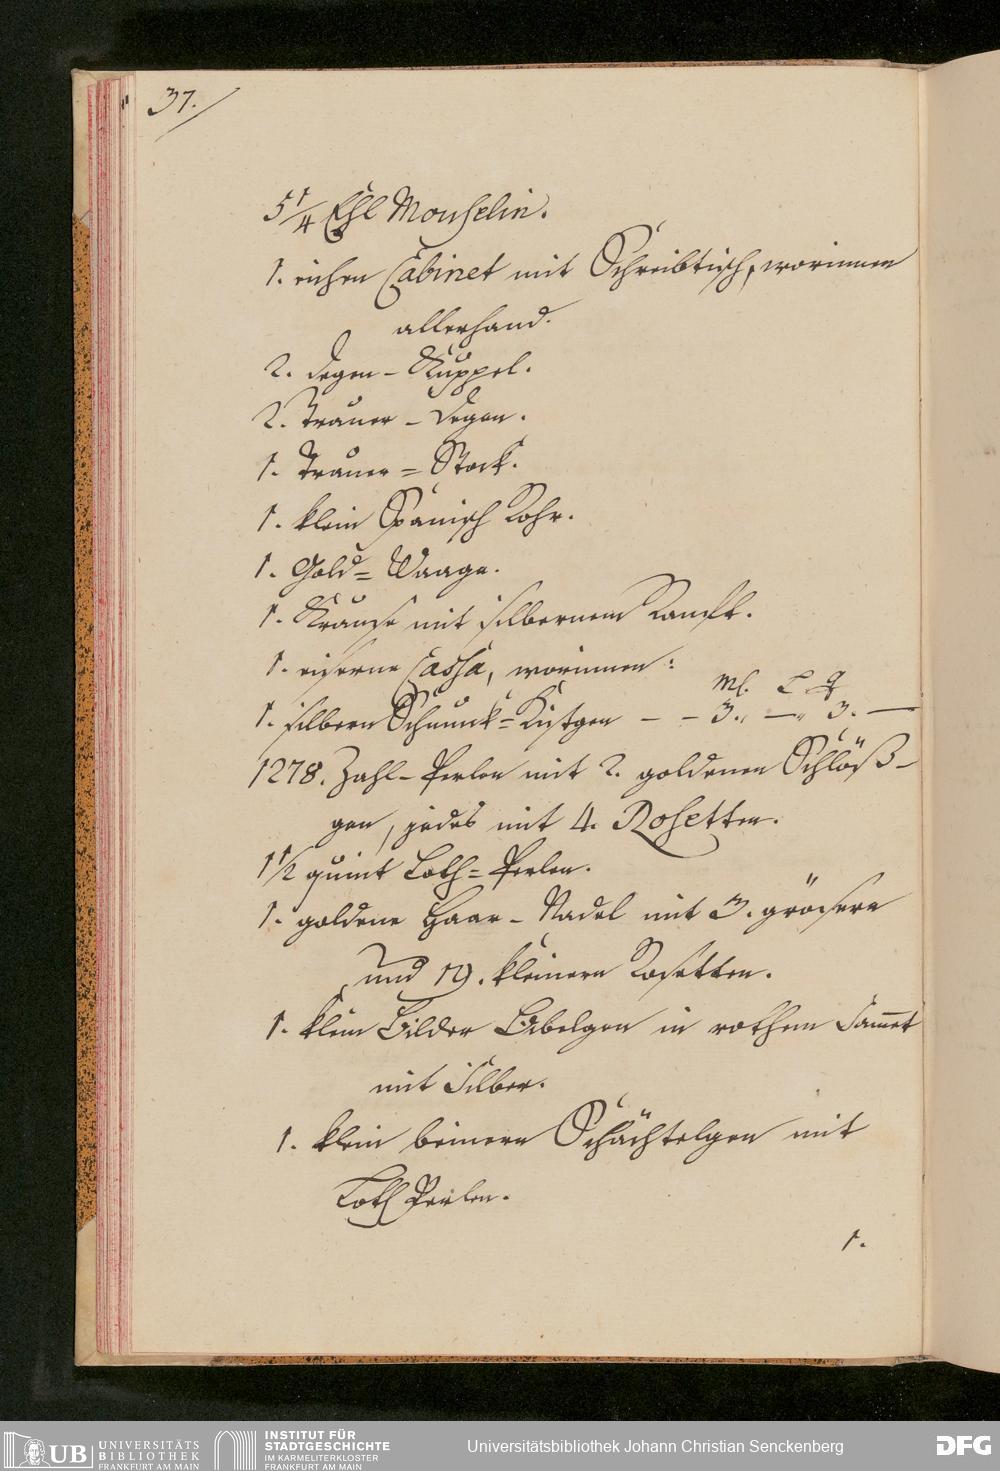 37.
5 1/4 Ehl Mouselin.
1. eichen Cabinet mit Schreibtisch, worinnen
allerhand.
2. Degen-Kuppel.
2. Trauer-Degen.
1. Trauer=Stock.
1. klein Spanisch Rohr.
1. Gold=Waage.
1. Krause mit silbernem Ranfft.
1. eiserne Cassa, worinnen:
Mk. L q
1. silbern Schmuck=Kistgen — – 3. „ — „ 3. —
1278. Zahl-Perlen mit 2. goldenen Schlöß-
gen, jedes mit 4. Rosetten.
1 1/2 quint Loth=Perlen.
1. goldene Haar-Nadel mit 3. grösern
und 19. kleinern Rosetten.
1. klein Bilder Bibelgen in rothem Sam̅et
mit Silber.
1. klein beinern Schächtelgen mit
Loth Perlen.
1.
UB UNIVERSITÄTS
BIBLIOTHEK
FRANKFURT AM MAIN
INSTITUT FÜR
STADTGESCHICHTE
IM KARMELITERKLOSTER
FRANKFURT AM MAIN
Universitätsbibliothek Johann Christian Senckenberg
DFG